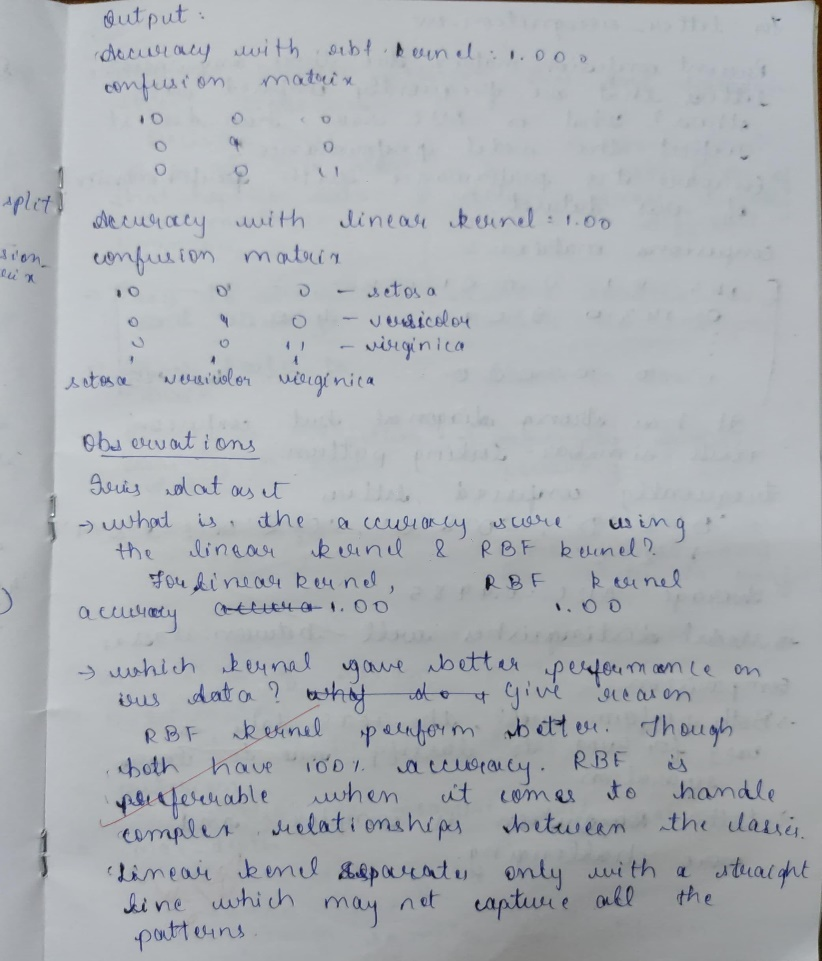 Output:
Accuracy with rbf kernel: 1.000
confusion matrix
10 0 0
0 9 0
0 0 11
split
Accuracy with linear kernel = 1.00
confusion matrix
sion-
rix
10 0 0 - setosa
0 9 0 - versicolor
0 0 11 - virginica
setosa versicolor virginica
Observations
Iris dataset
→ what is the accuracy score using
the linear kernel & RBF kernel?
For Linear kernel, RBF kernel
)
accuracy accura 1.00 1.00
→ which kernal gave better performance on
iris data? why do Give reason
RBF kernel perform better. Though
both have 100% accuracy. RBF is
preferrable when it comes to handle
complex relationships between the classes.
Linear kenel separates only with a straight
line which may not capture all the
patterns.